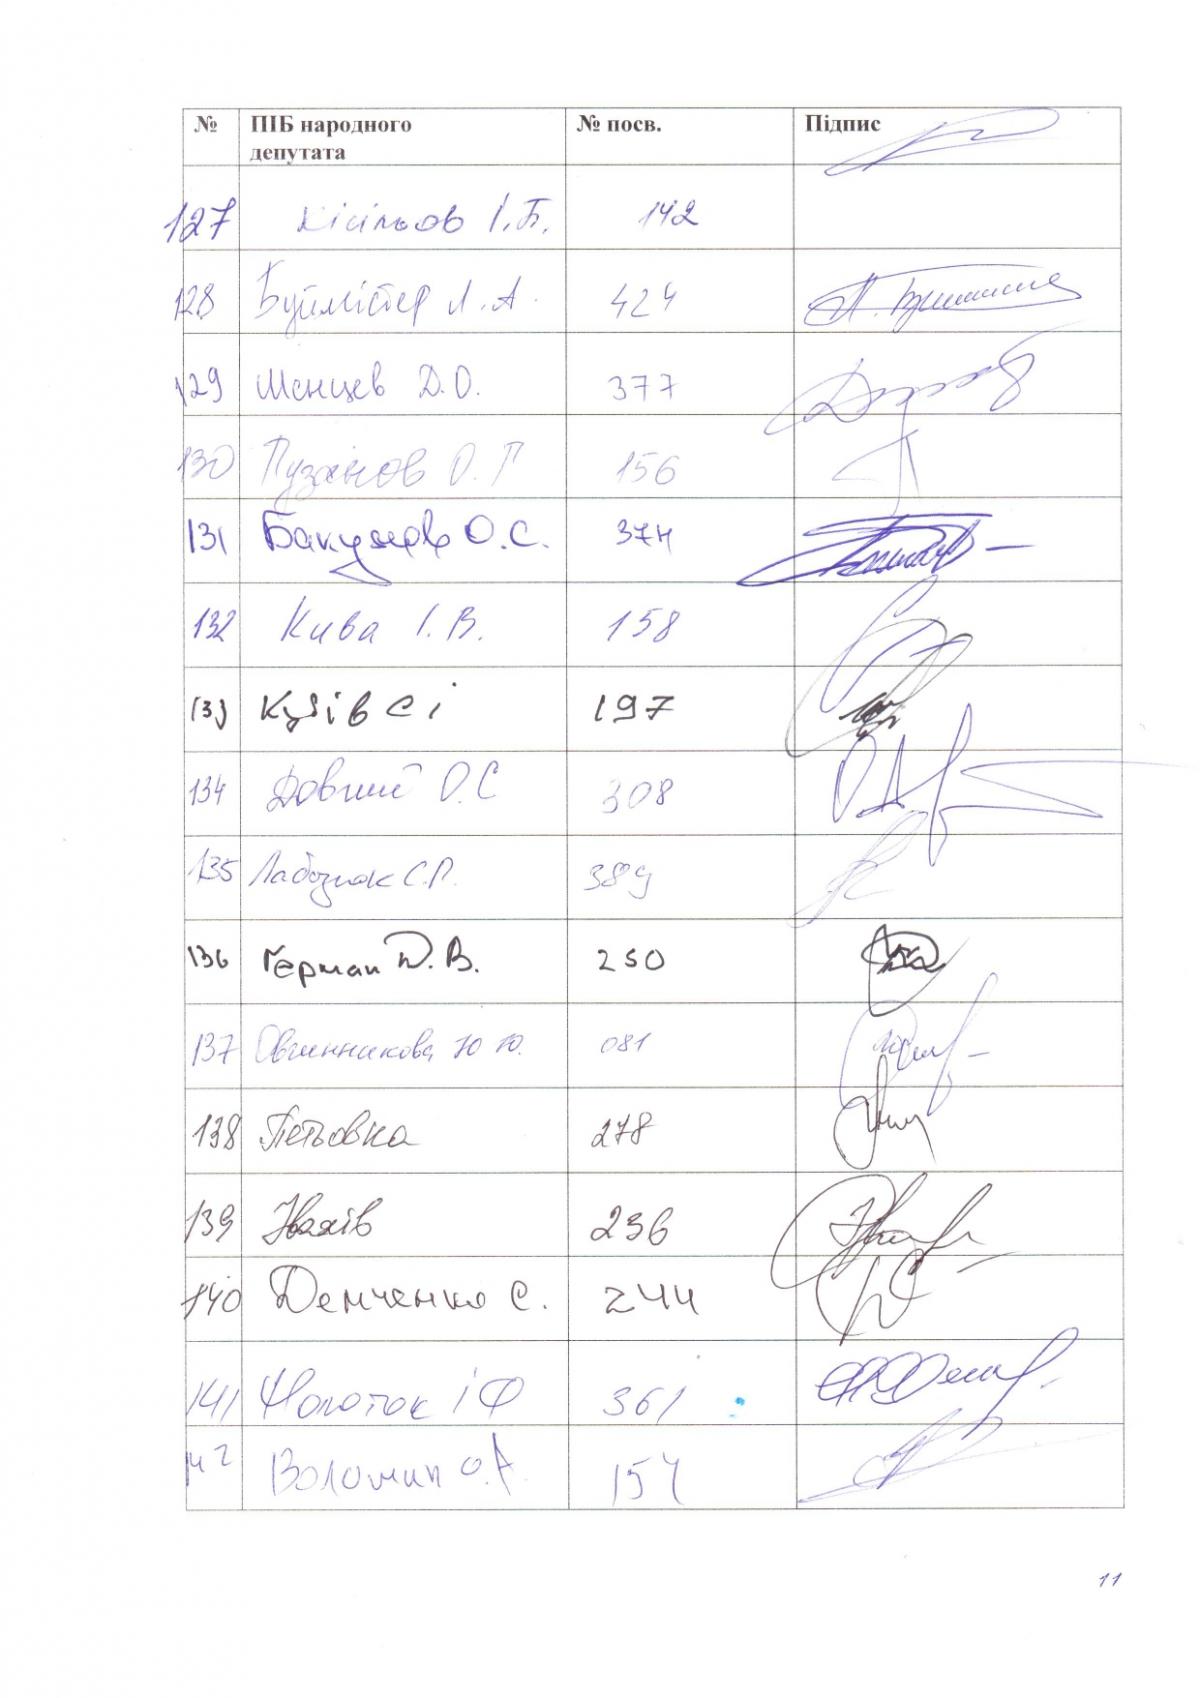 № ПІБ народного № посв. Підпис
депутата
127 Кісільов І.Б. 142
128 Буймістер Л.А. 424
129 Шенцев Д.О. 377
130 Пузанов О.Г 156
131 Бакумов О.С. 374
132 Кива І.В. 158
133 Кузів С І 197
134 Довгий О.С 308
135 Лабазюк С.П. 389
136 Герман Д.В. 250
137 Овчинникова Ю.Ю. 081
138 Петьовка 278
139 Івахів 236
140 Демченко С. 244
141 Молоток І Ф 361
142 Волошин О.А. 154
11